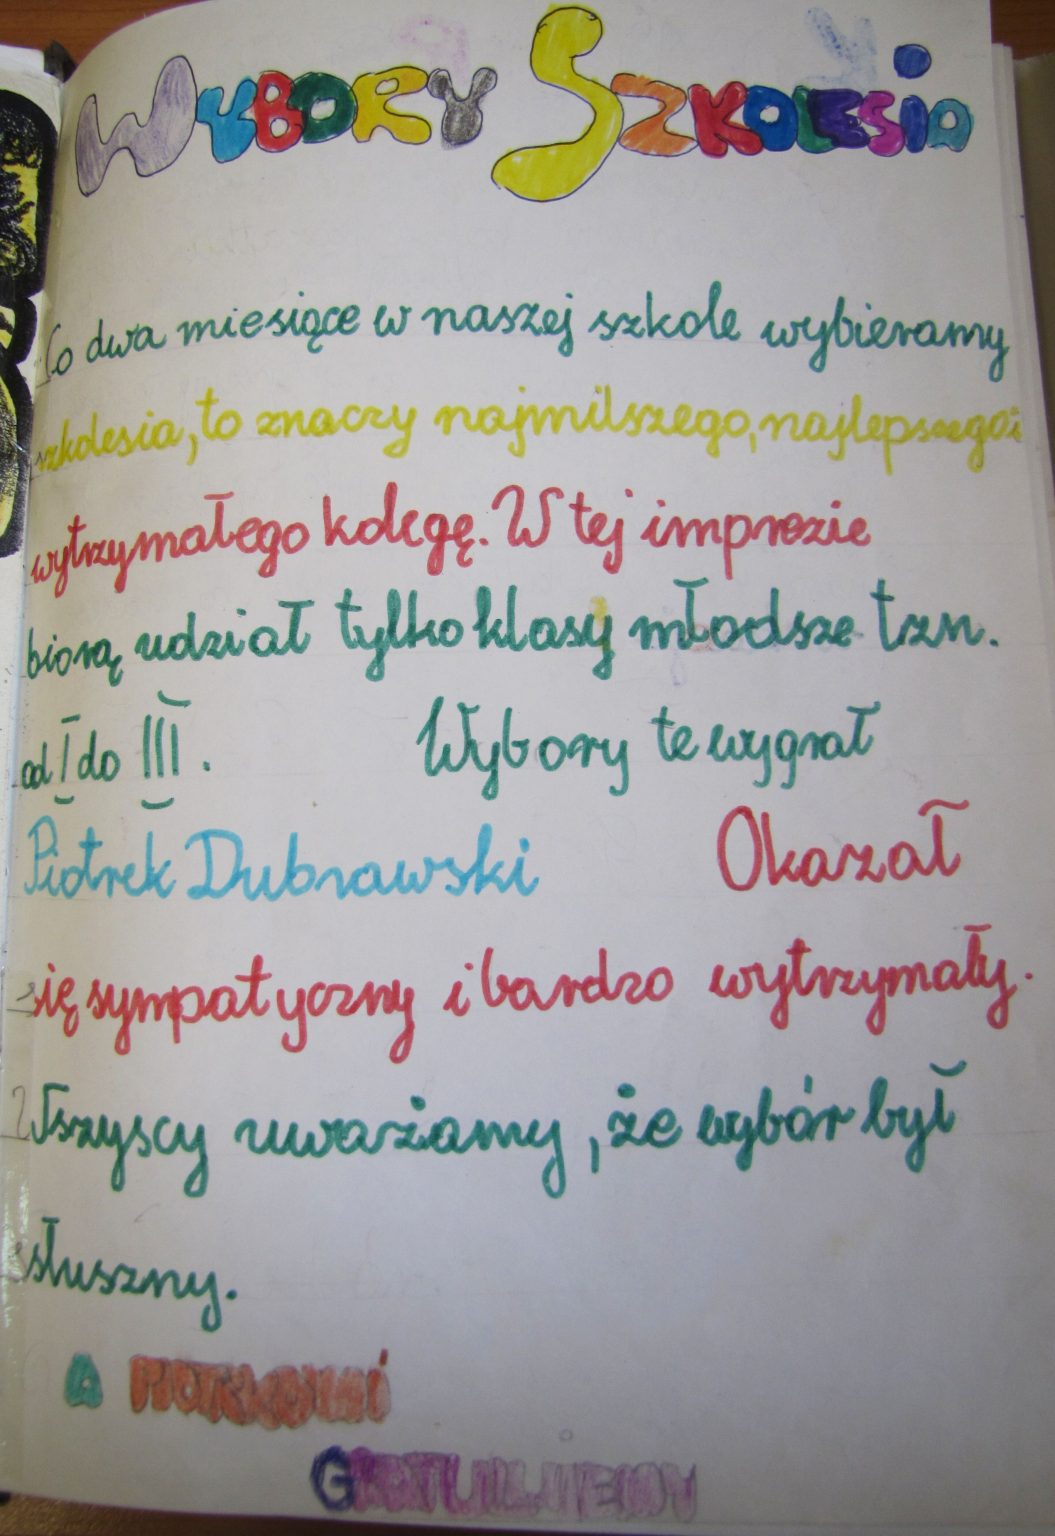 WYBORY SZKOLESIA
Co dwa miesiące w naszej szkole wybieramy
szkolesia, to znaczy najmilszego, najlepszego i
wytrzymałego kolegę. W tej imprezie
biorą udział tylko klasy młodsze tzn.
od I do III. Wybory te wygrał
Piotrek Dubrawski Okazał
się sympatyczny i bardzo wytrzymały.
Wszyscy uważamy, że wybór był
słuszny.
A PIOTRKOWI
GRATULUJEMY